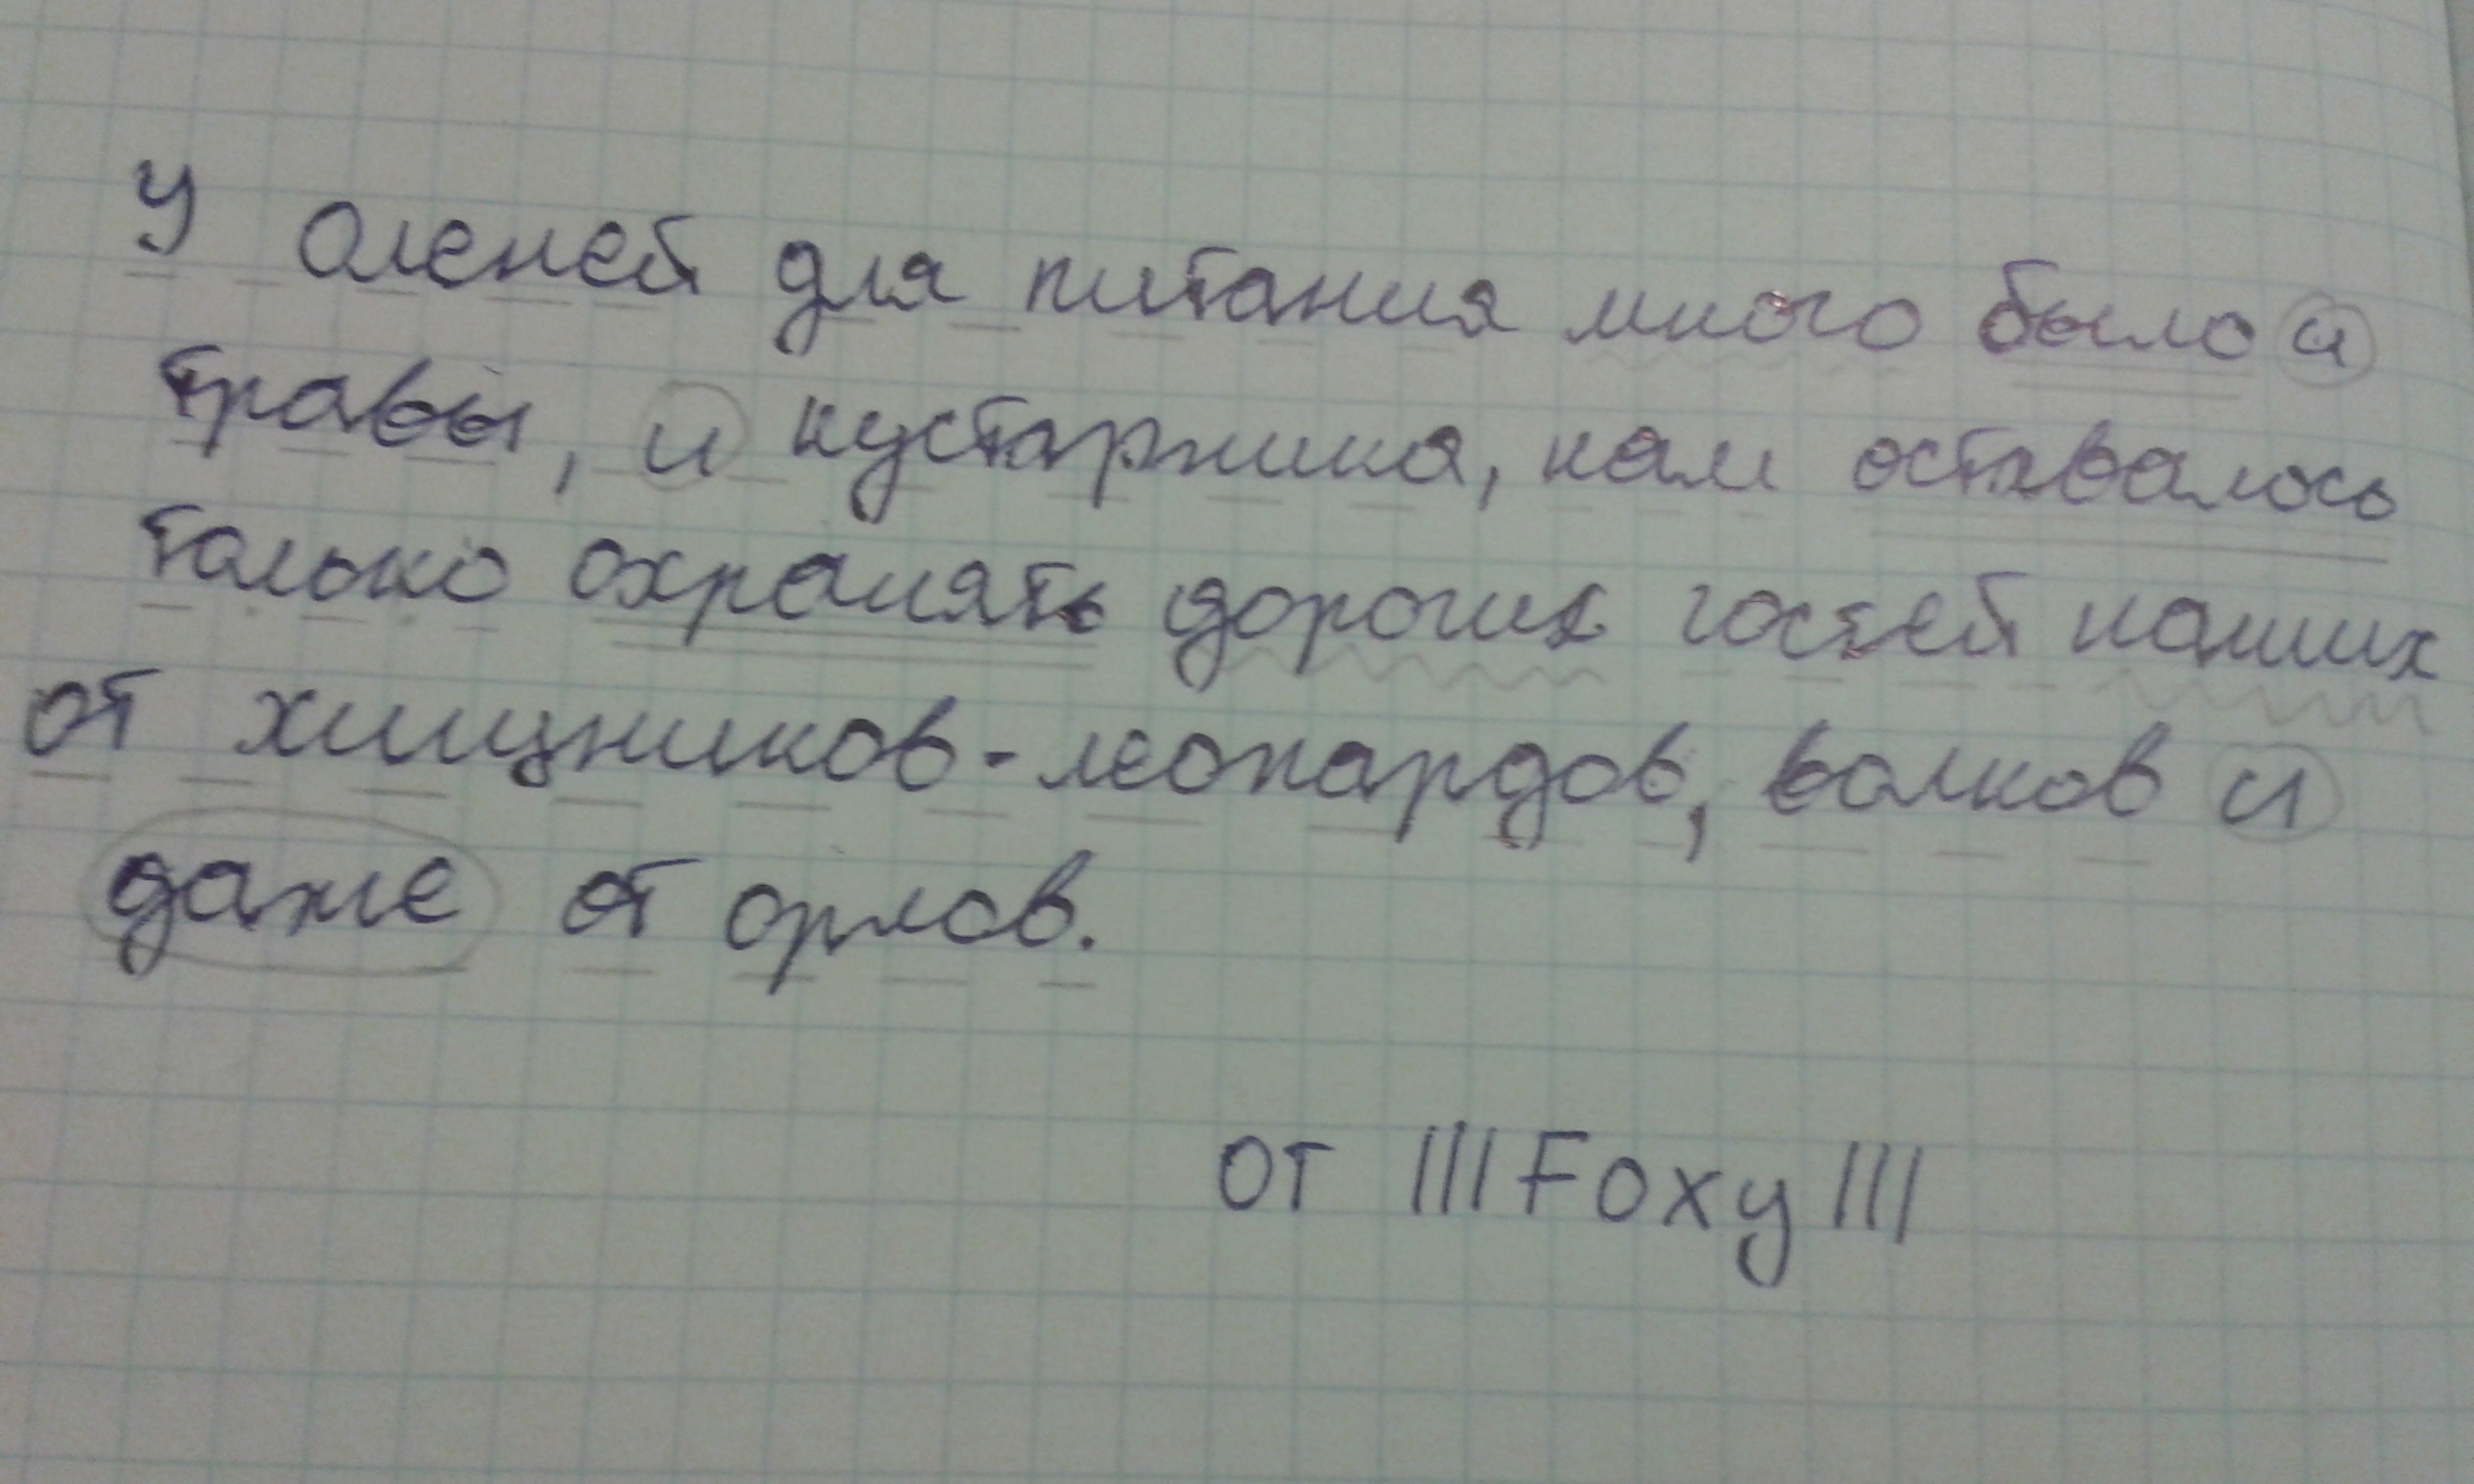 У оленей для питания много было и
травы, и кустарника, нам оставалось
только охранять дорогих гостей наших
от хищников-леопардов, волков и
даже от орлов.
от |||Foxy|||